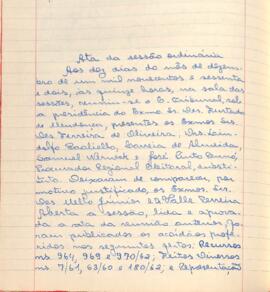 Ata da sessão ordinária
Aos dez dias do mês de dezem-
bro de um mil novecentos e sessenta
e dois, às quinze horas, na sala das
sessões, reuniu-se o E. Tribunal, sob
a presidência do Exmo. Sr. Des. Furtado
de Mendonça, presentes os Exmos. Srs.
Des. Ferreira de Oliveira, Drs. Lin-
dolfo Paoliello, Correia de Almeida,
Samuel Werneck e José Pinto
Procurador Regional Eleitoral, substi-
tuto. Deixaram de comparecer, por
motivo justificado, os Exmos. Srs.
Des. Mello Júnior e Valle Ferreira.
Aberta a sessão, lida e aprova-
da a ata da reunião anterior, fo-
ram publicados os acórdãos profe-
ridos nos seguintes feitos: Recursos
ns. 964, 969 e 970/62; Feitos Diversos
ns. 7/61, 63/60 e 180/62; e Representação